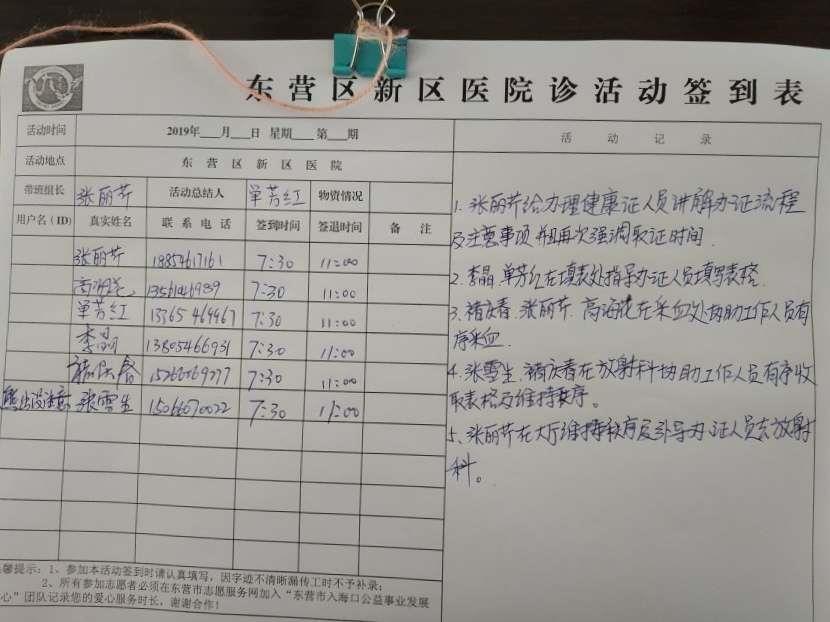 东营区新区医院诊活动签到表
活动时间 2019年___月___日 星期___ 第___期 活动记录
活动地点 东营区新区医院
带班组长 张丽芹 活动总结人 单芳红 物资情况
用户名(ID) 真实姓名 联系电话 签到时间 签退时间 备注
张丽芹 18854617161 7:30 11:00
高海花 13561446989 7:30 11:00
单芳红 13365469467 7:30 11:00
李晶 13805466931 7:30 11:00
7:30 11:00
张雪生 15066070022 7:30 11:00
1、张丽芹给办理健康证人员讲解办证流程
及注意事项并且再次强调取证时间.
2、李晶.单芳红在填表处指导办证人员填写表格.
3、褚庆春.张丽芹.高海花在采血处协助工作人员有
序采血.
4、张雪生、褚庆春在放射科协助工作人员有序收
取表格及维持秩序。
5、张丽芹在大厅维持秩序及引导办证人员去放射
科。
馨提示:1、参加本活动签到时请认真填写,因字迹不清晰漏传工时不予补录;
2、所有参加志愿者必须在东营市志愿服务网加入“东营市入海口公益事业发展
心”团队记录您的爱心服务时长,谢谢合作!